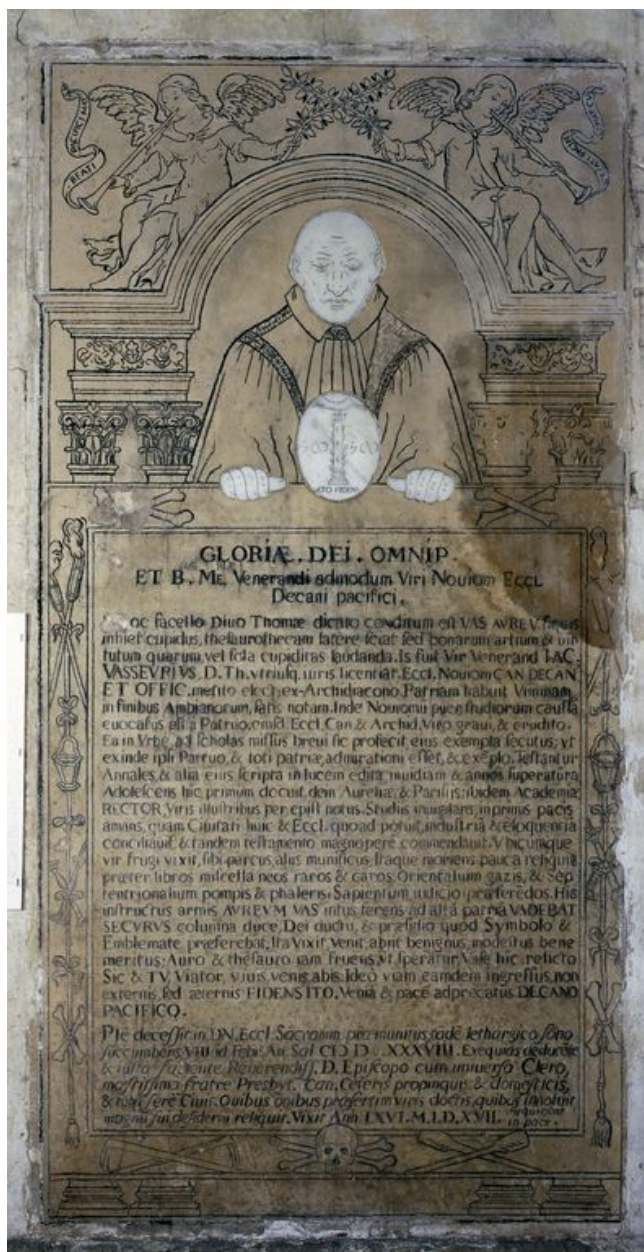 BEATI PACIFICI
ITO FIDENS
GLORIÆ . DEI . OMNIP .
ET B. ME. Venerandi admodum Viri Nouiom ECCL
Decani pacifici .
oc sacello Diuo Thomæ dicato conditum est VAS AVREV
inhiet cupidus, thesaurothecam latere sciat sed bonarum artium & vir
tutum quarum vel sola cupiditas laudanda. Is fuit Vir Venerand IAC.
VASSEVRIVS D. Th. vtriusq. iuris licentiat. Eccl. Nouiom CAN DECAN
ET OFFIC. merito elect. ex-Archidiacono. Patriam habuit
in finibus Ambianorum, satis notam. Inde Nouiomū puer studiorum caussa
euocatus est a Patruo, eiusd. Eccl. Can & Archid. Viro graui, & erudito.
Ea in Vrbe ad scholas missus breui sic profecit, eius exempla secutus; vt
exinde ipsi Patruo, & toti patriæ, admirationi esset, & exēplo. Testantur
Annales, & alia eius scripta in lucem edita inuidiam & annos superatura
Adolescens hic primum docuit dein Aureliæ, & Parisiis; ibidem Academiæ
RECTOR, Viris illustribus per epist notus. Studiis inuigilans, inprimis pacis
amans, quam Ciuitati huic & Eccl. quoad potuit, industriâ & eloquentia
conciliauit, & tandem testamento magnopere commendauit. Vbicumque
vir frugi vixit, sibi parcus aliis munificus. Itaque moriens pauca reliquit
præter libros miscella neos raros & caros, Orientalium gazis, & Sep
tentrionalium pompis & phaleris, Sapientum iudicio præferēdos. His
instructus armis AVREVM VAS intus ferens ad alta patria VADEBAT
SECVRVS columna duce, Dei ductu, & præsidio quod Symbolo &
Emblemate præferebat. Ita vixit, venit, abiit benignus, modestus bene
meritus; Auro & thesauro iam fruens, vt speratur. Vale hic relicto
Sic & TV, Viator, viuis, venis, abis. Ideo viam eamdem ingressus, non
externis, sed æternis FIDENS ITO, Veniā & pacē adprecatus DECANO
PACIFICO.
Piè decessit in DN. Eccl. Sacram præmunitus
succumbens VIII id Febr. An. Sal XXXVIII. Exequias
& iusta faciente Reuerendiss. D. Episcopo cum uniuerso Clero,
mœstissimo fratre Presbyt. Can. Ceteris propinquis & domesticis,
& totâ ferè Ciuit. Quibus omnibus præsertim viris doctis, quibus
magnū sui desideriū reliquit. Vixit Ann LXVI. M. I. D. XVII.
requiescat
in pace.